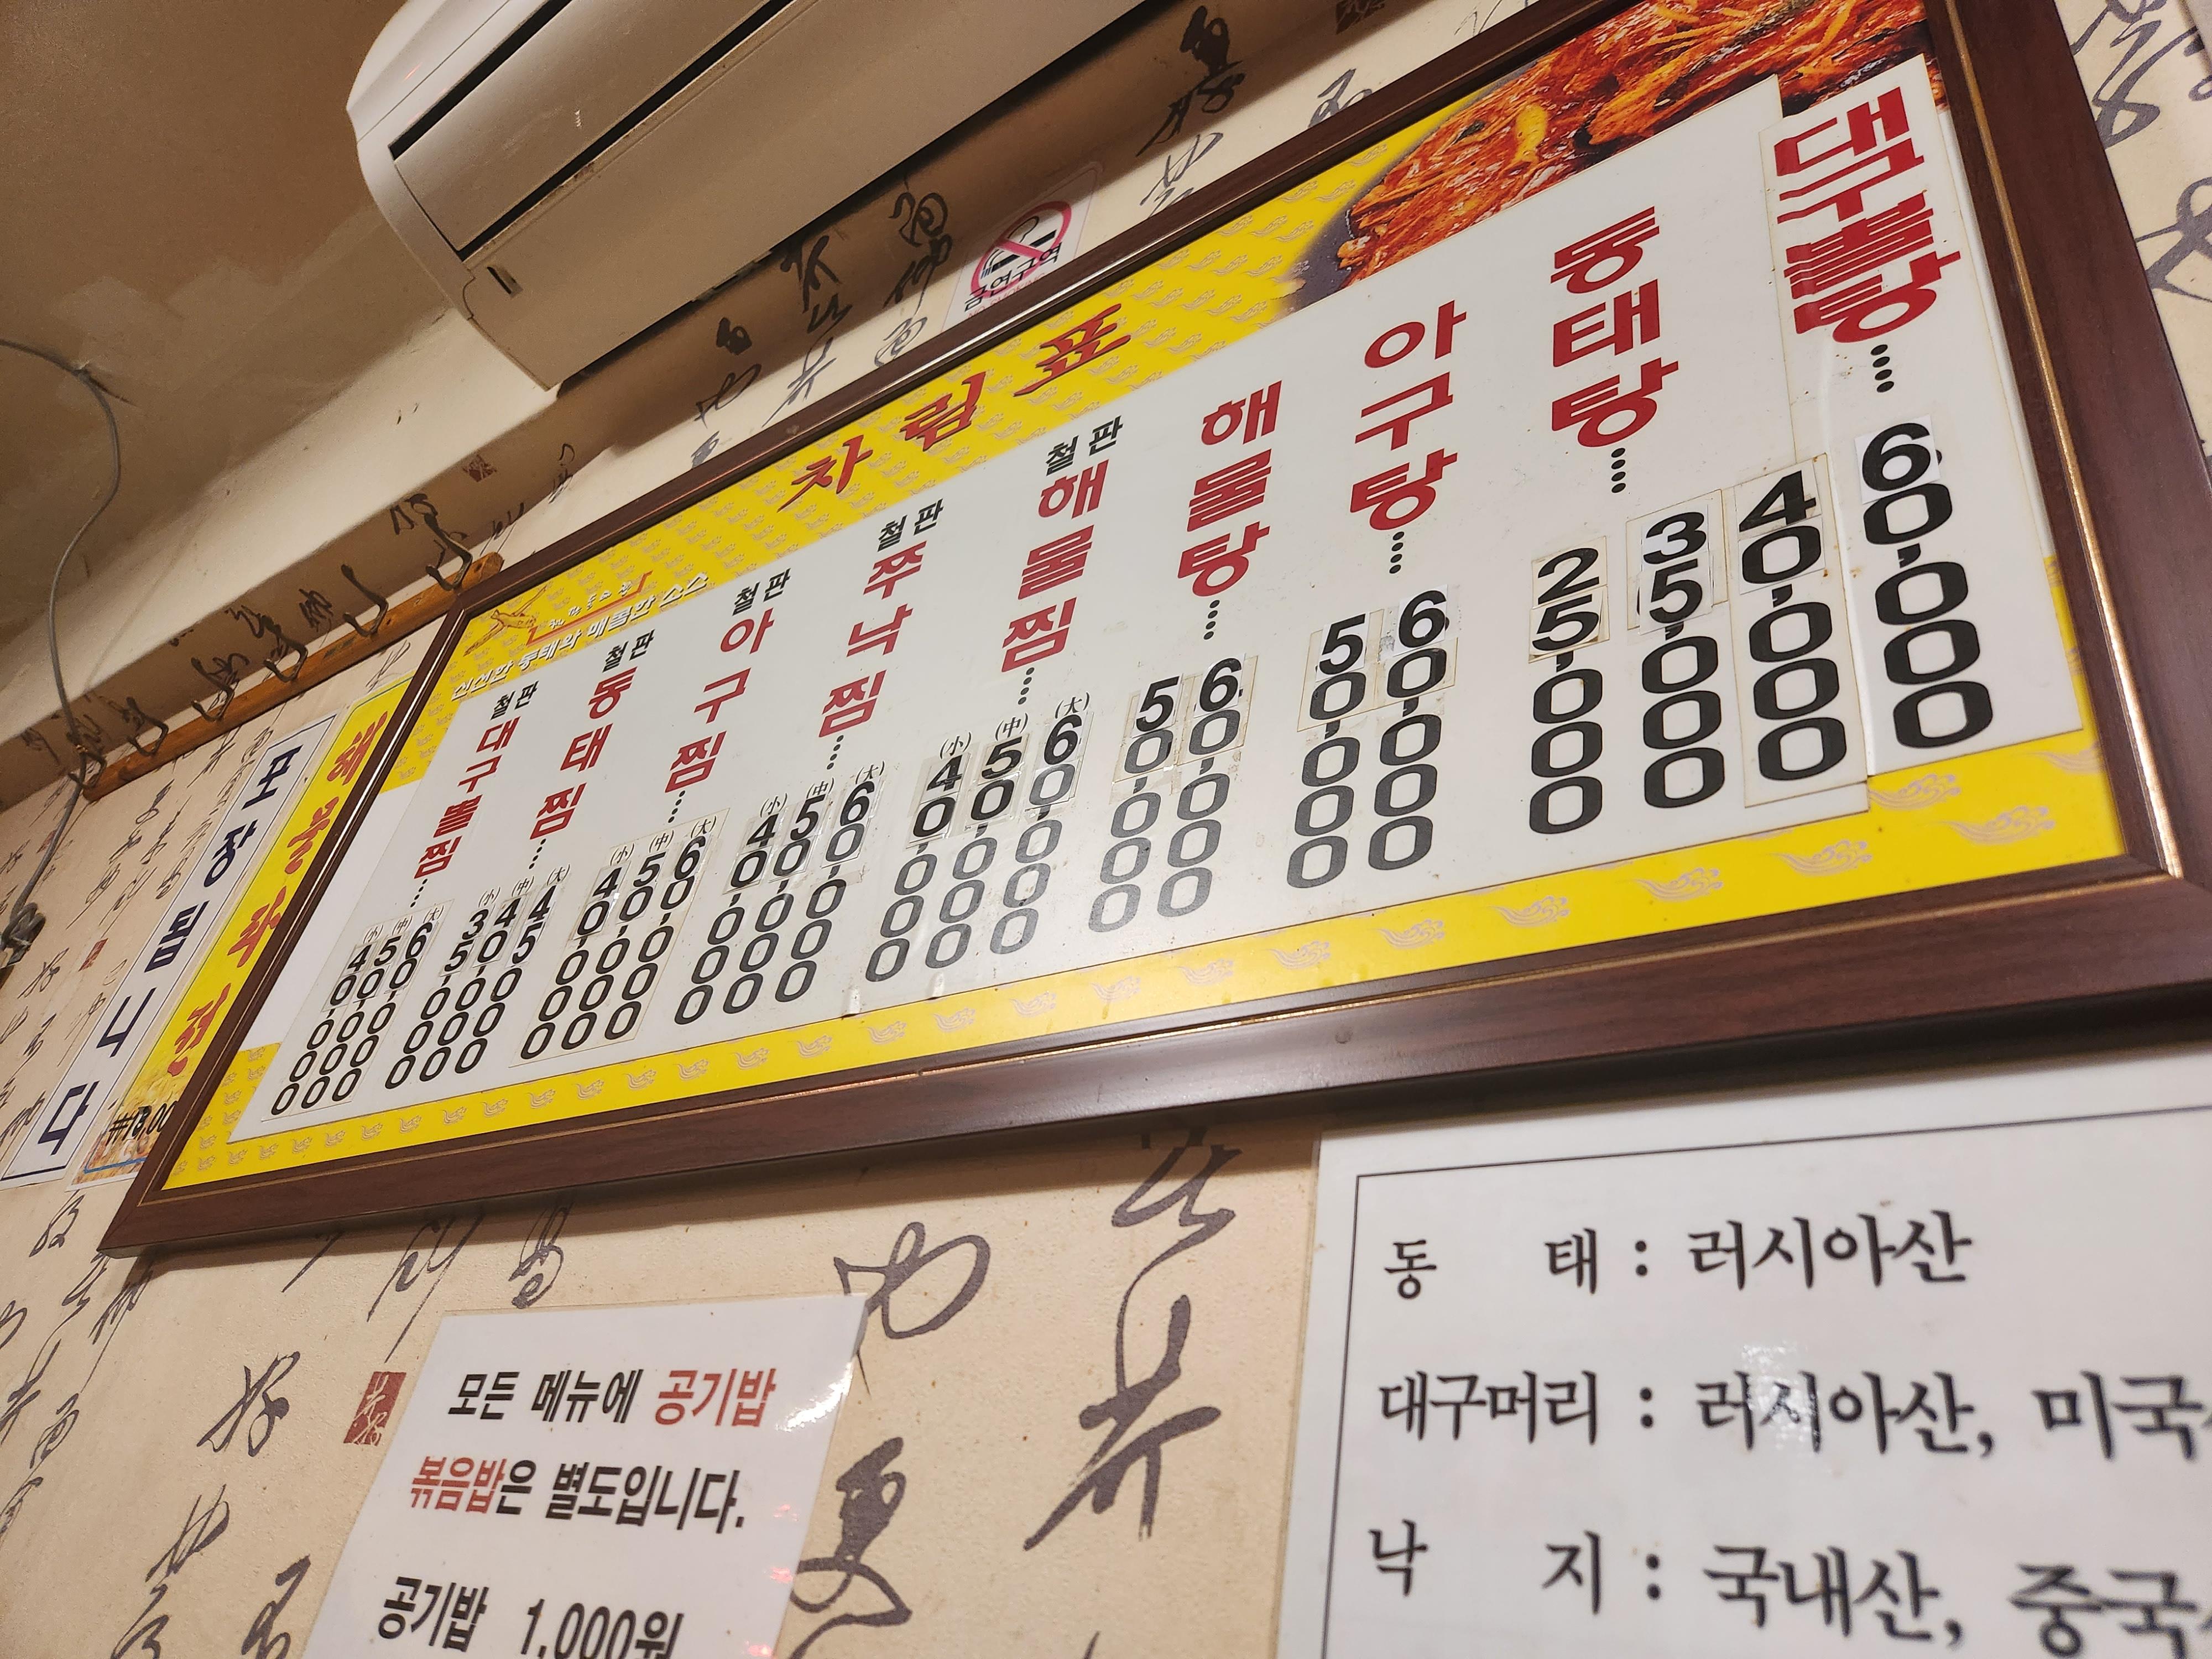 금연구역
차림표
신선한 동태와 매콤한 소스
포장됩니다
철판 대구뽈찜.... (小) 40,000 (中) 50,000 (大) 60,000
철판 동태찜.... (小) 35,000 (中) 40,000 (大) 45,000
철판 아구찜.... (小) 40,000 (中) 50,000 (大) 60,000
철판 쭈낙찜.... (小) 40,000 (中) 50,000 (大) 60,000
철판 해물찜.... (小) 40,000 (中) 50,000 (大) 60,000
해물탕.... 50,000 60,000
아구탕.... 50,000 60,000
동태탕.... 25,000 35,000 40,000
대구뽈탕.... 60,000
모든 메뉴에 공기밥
볶음밥은 별도입니다.
공기밥 1,000원
동 태 : 러시아산
대구머리 : 러시아산, 미국
낙 지 : 국내산, 중국